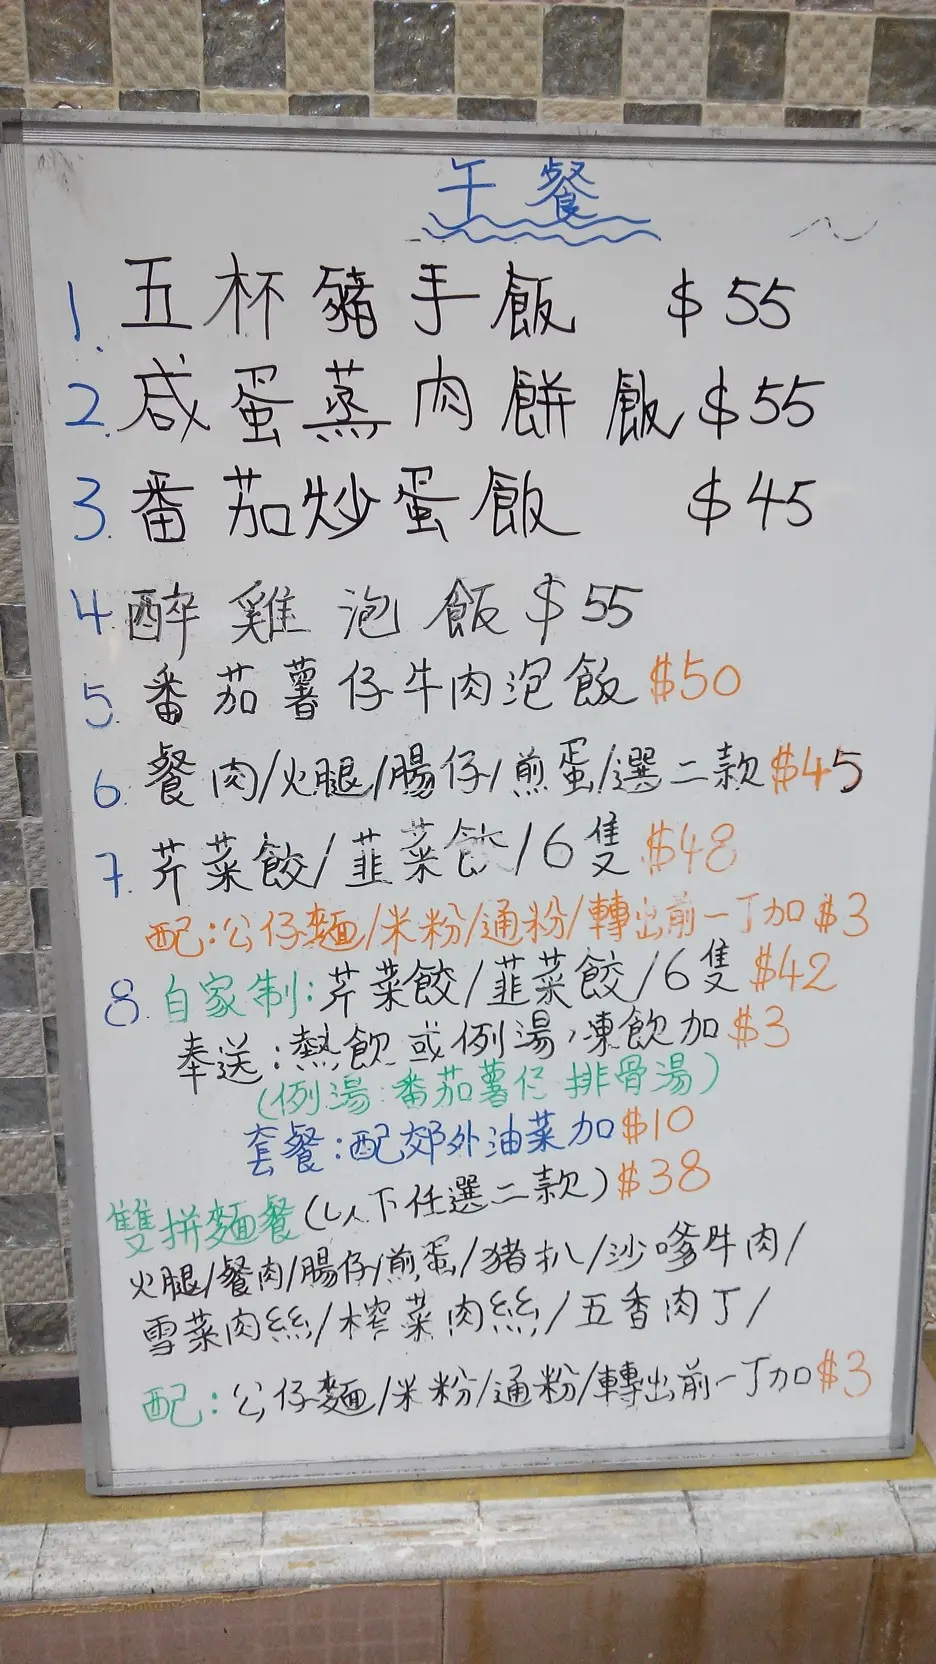 午餐
1. 五杯豬手飯 $55
2. 咸蛋蒸肉餅飯 $55
3. 番茄炒蛋飯 $45
4. 醉雞泡飯 $55
5. 番茄薯仔牛肉泡飯 $50
6. 餐肉/火腿/腸仔/煎蛋/選二款 $45
7. 芹菜餃/韮菜餃/6隻 $48
配:公仔麵/米粉/通粉/轉出前一丁加 $3
8. 自家制:芹菜餃/韮菜餃/6隻 $42
奉送:熱飲或例湯,凍飲加 $3
(例湯:番茄薯仔排骨湯)
套餐:配郊外油菜加 $10
雙拼麵餐(以下任選二款) $38
火腿/餐肉/腸仔/煎蛋/豬扒/沙嗲牛肉/
雪菜肉絲/榨菜肉絲/五香肉丁/
配:公仔麵/米粉/通粉/轉出前一丁加 $3